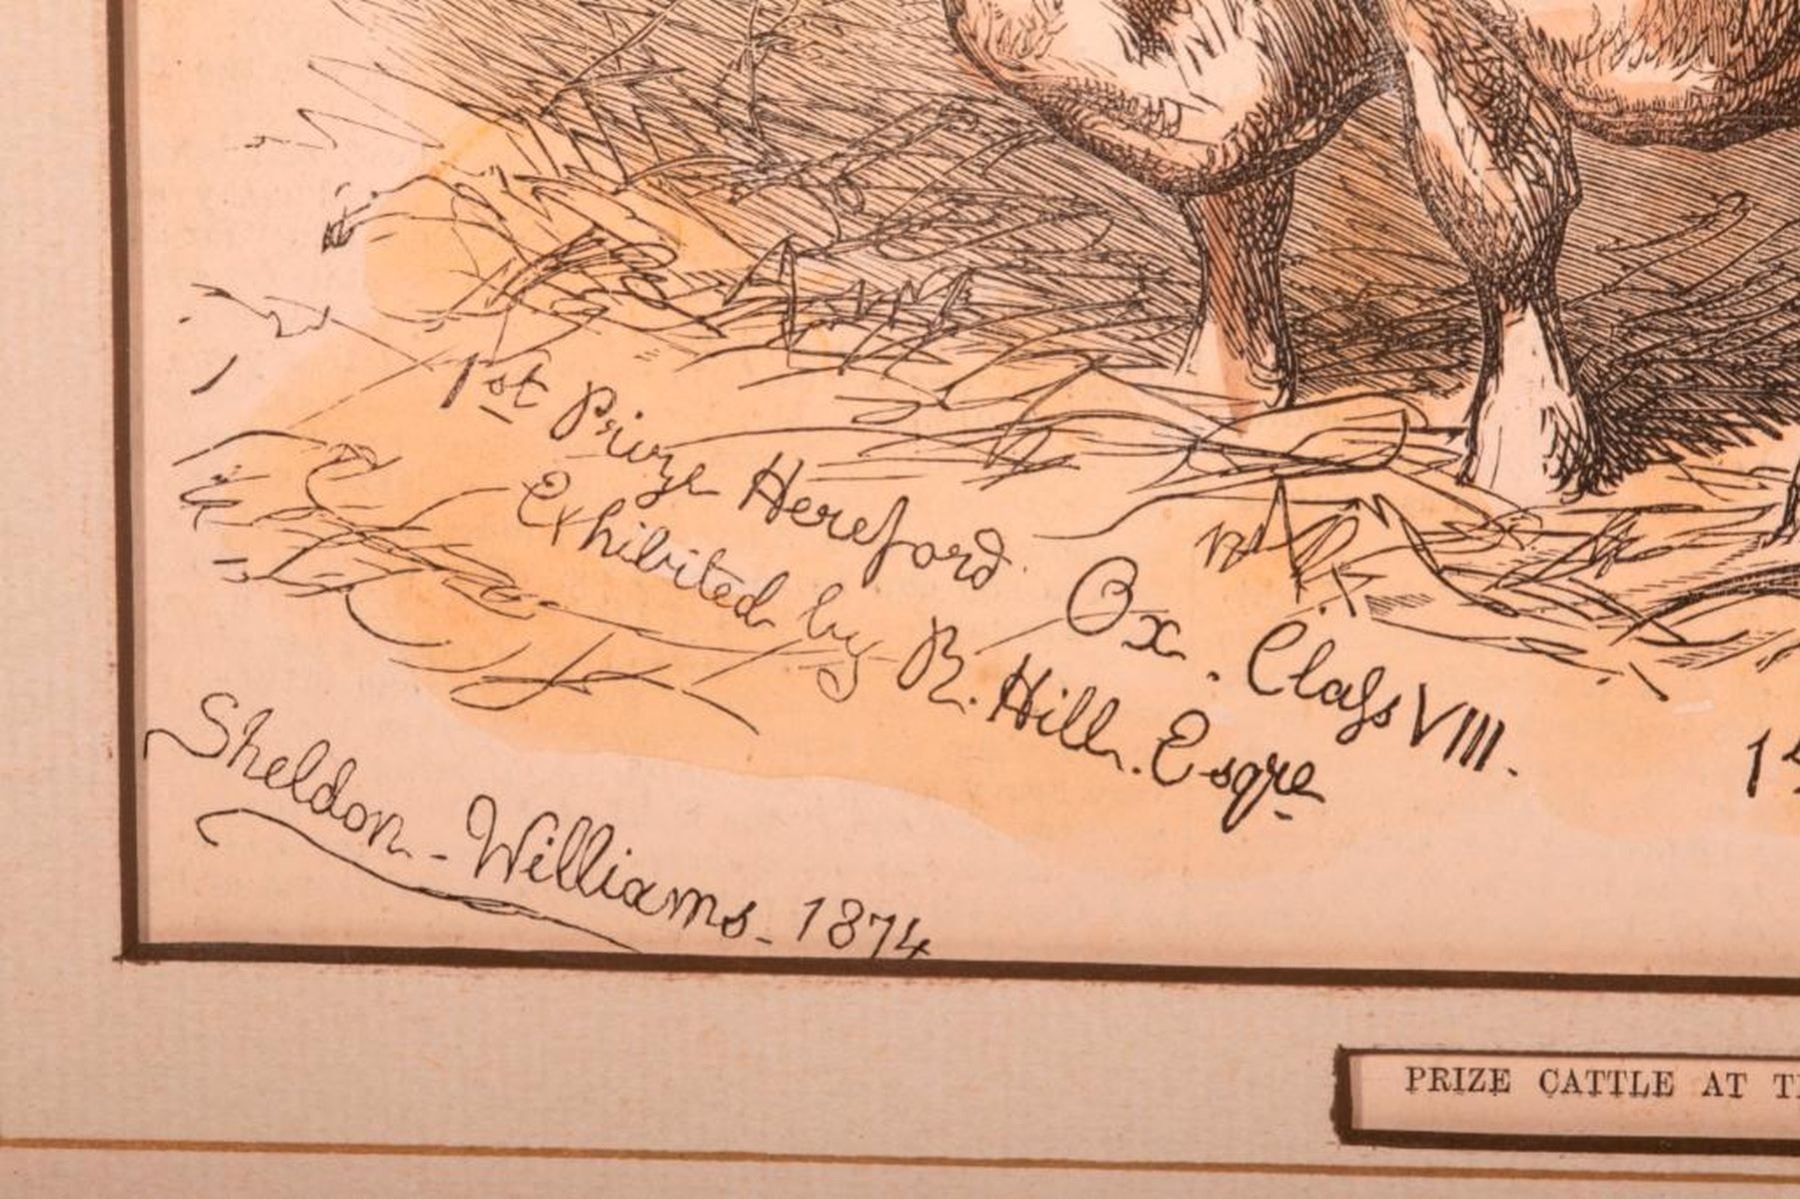 1st Prize Hereford Ox. Class VIII.
Exhibited by R. Hill. Esqre
Sheldon-Williams-1874
PRIZE CATTLE AT